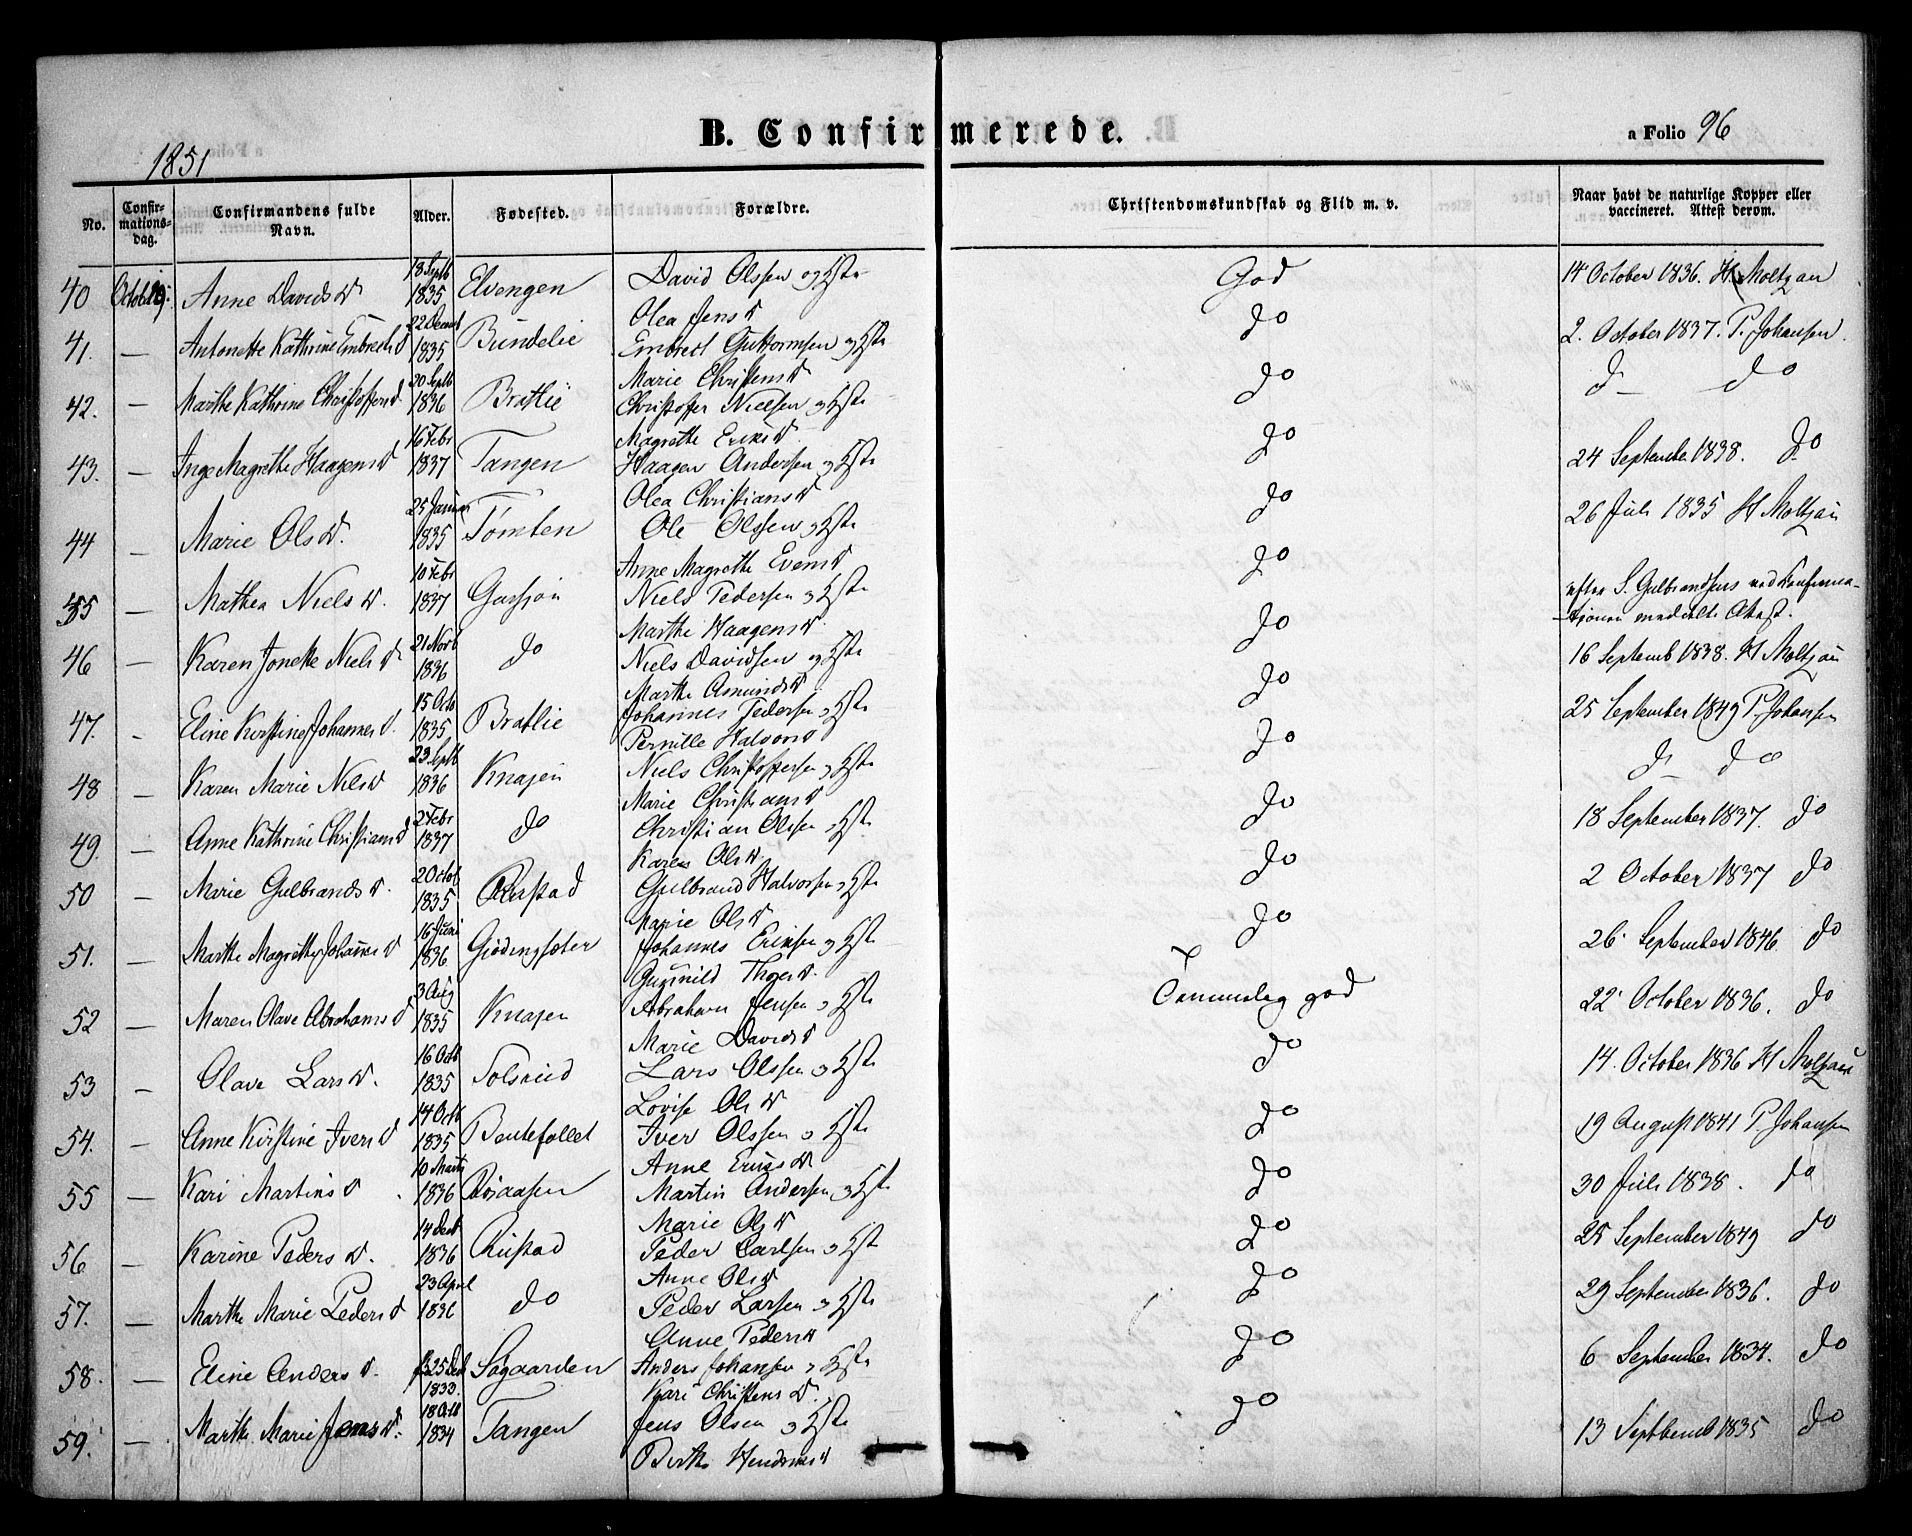 1851
B. Confirmerede.
a Folio 96
No. Confirmationsdag. Confirmandens fulde Navn. Alder. Fødested. Forældre. Christendomskundskab og Flid m. v. Naar havt de naturlige Kopper eller vaccineret. Attest derom.
40 Anne Davidsd 18 Septb 1835 Elvengen David Olssen og Hstr God 14 October 1836. H. Moltzau
Olea Jensd
41. — Antonette Kathrine Embretsd 22 Decmb 1835 Bundelie Embret Guttormsen og Hstr do 2. October 1837. P. Johansen.
Marie Christensd
42. — Marthe Kathrine Christoffersd. 20 Septb 1836 Bratlie Christoffer Nielsen og Hstr do d— do
Magrethe Eriksd.
43. — Inge Magrethe Haagensd 16 Febr 1837 Tangen Haagen Andersen og Hstr do 24 September 1838. do
Olea Christiansd
44 — Marie Olsd. 25 Januar 1835 Tømten Ole Olssen og Hstr do 26 Juli 1835 H Moltzau
Anne Magrethe Evensd
45 — Mathea Nielsd. 10 Febr 1837 Garsjøn Niels Pedersen og Hstr do efter S. Gulbrandsens ved Confirmationen meddelte Attest.
Marthe Haagensd.
46 — Karen Jonette Nielsd 21 Novb 1836 do Niels Davidsen og Hstr do 16 Septemb 1838. H Moltzau
Marthe Asmundsd
47. — Eline Kirstine Johannesd. 15 Octb 1835 Bratlie Johannes Pedersen og Hstr do 25 September 1849 P. Johansen
Pernille Halvorsd
48 — Karen Marie Nilsd 23 Septb 1836 Knajen Niels Christoffersen og Hstr do d— do
Marie Christiansd
49. — Anne Kathrine Christiansd 2 Febr 1837 do Christian Olssen og Hstr do 18 September 1837. do
Karen Olsd.
50 — Marie Gulbrandsd. 2 Octob 1835 Gulbrand Halvorsen og Hstr do 2 October 1837 do
Marie Olsd
51. — Marthe Magrethe Johannesd 16 Juni 1836 Johannes Eriksen og Hstr do 26. September 1846 do
Gunnild Thoresd.
52 — Maren Olave Abrahamsd 3 Aug 1835 Knajen Abraham Jensen og Hstr Temmelig god 22. October 1836. do
Marie Davidsd
53 — Olave Larsd. 16 Octb 1835 Lars Olssen og Hstr do 14. October 1836 H Moltzau
Lovise Olsd
54. — Anne Kirstine Iversd 14 Octb 1835 Iver Olssen og Hstr do 19 August 1841 P. Johansen
Anne Eriksd.
55 — Kari Martinsd. 10 Marts 1836 Martin Andersen og Hstr do 30 Juli 1838. do
Marie Olsd
56 — Karine Pedersd. 14 Decb 1836 Rustad Peder Carlsen og Hstr do 25 September 1849 do
Anne Olsd
57. — Marthe Marie Pedersd 23 April 1836 do Peder Larsen og Hstr do 29 September 1836. do
Anne Pedersd
58. — Eline Andersd. 25 Decb 1833. Sagaarden Anders Johansen og Hstr do 6 September 1834. do
Kari Christensd.
59. — Marthe Marie Jensd. 18 Octb 1834 Tangen Jens Olsen og Hstr do 13 Septbemb 1835 do
Berthe Hendriksd